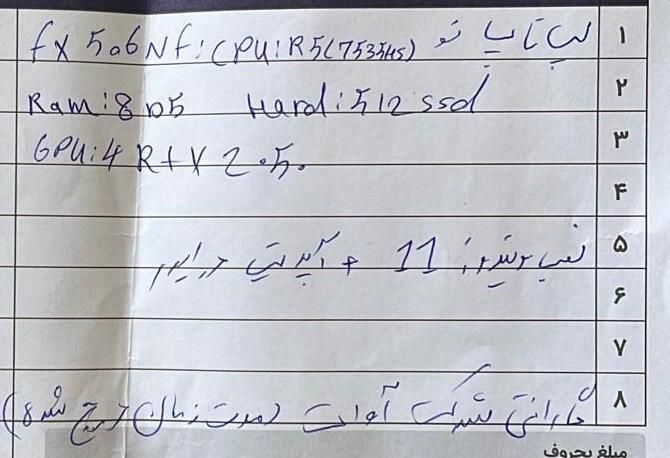 ۱ لپ تاپ نو FX 506NF : CPU : R5 (7535HS)
۲ Ram : 8 DD5 Hard : 512 ssd
۳ GPU : 4 RTX 2050
۴
۵ نصب ویندوز 11 + آپدیت درایور
۶
۷
۸ گارانتی شرکت آوات (مدت زمان درج شده)
مبلغ بحروف